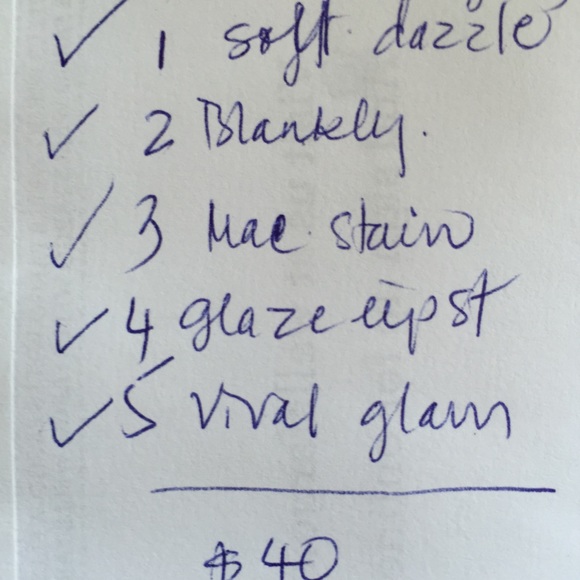 ✓ 1 soft dazzle
✓ 2 Blankly.
✓ 3 Mac stain
✓ 4 glaze lipst
✓ 5 Viral glam
$ 40